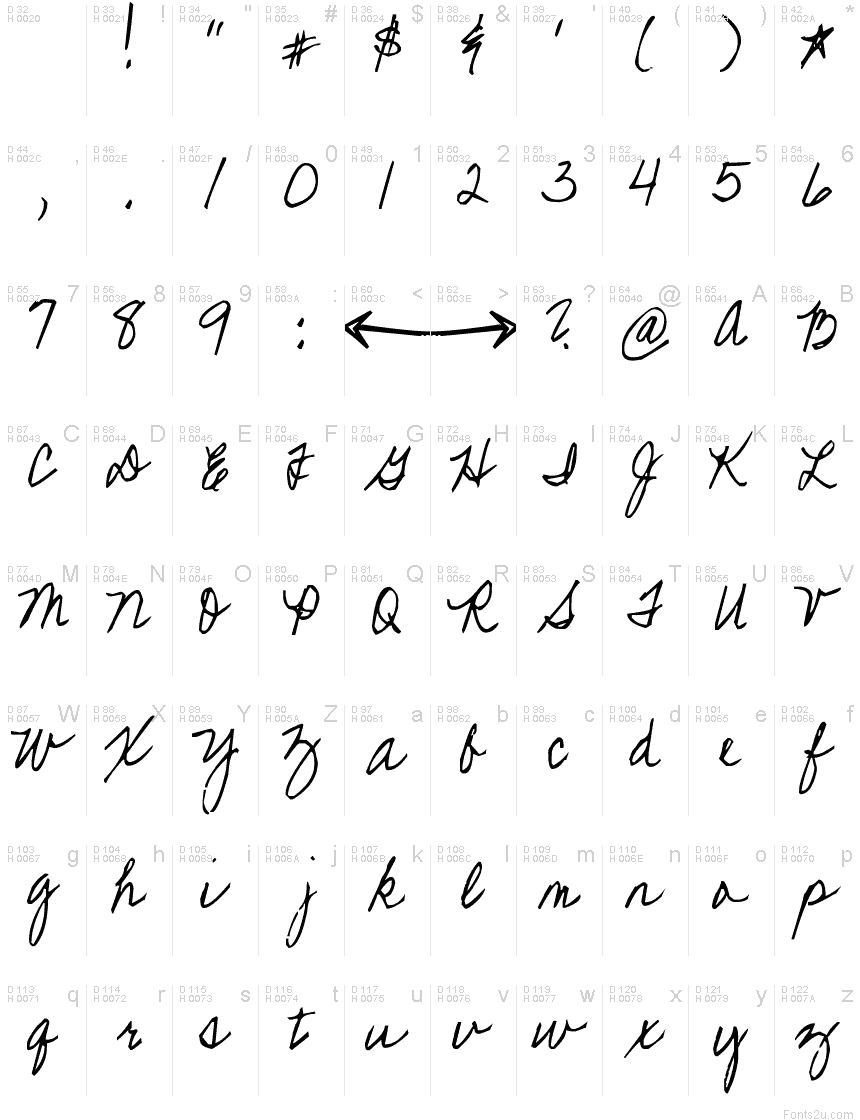 D 32 H 0020 D 33 H 0021 ! D 34 H 0022 " D 35 H 0023 # D 36 H 0024 $ D 38 H 0026 & D 39 H 0027 ' D 40 H 0028 ( D 41 H 0029 ) D 42 H 002A *
! " # $ & ' ( ) *
D 44 H 002C , D 46 H 002E . D 47 H 002F / D 48 H 0030 0 D 49 H 0031 1 D 50 H 0032 2 D 51 H 0033 3 D 52 H 0034 4 D 53 H 0035 5 D 54 H 0036 6
, . / 0 1 2 3 4 5 6
D 55 H 0037 7 D 56 H 0038 8 D 57 H 0039 9 D 58 H 003A : D 60 H 003C < D 62 H 003E > D 63 H 003F ? D 64 H 0040 @ D 65 H 0041 A D 66 H 0042 B
7 8 9 : ? @ A B
D 67 H 0043 C D 68 H 0044 D D 69 H 0045 E D 70 H 0046 F D 71 H 0047 G D 72 H 0048 H D 73 H 0049 I D 74 H 004A J D 75 H 004B K D 76 H 004C L
C D E F G H I J K L
D 77 H 004D M D 78 H 004E N D 79 H 004F O D 80 H 0050 P D 81 H 0051 Q D 82 H 0052 R D 83 H 0053 S D 84 H 0054 T D 85 H 0055 U D 86 H 0056 V
M N O P Q R S T U V
D 87 H 0057 W D 88 H 0058 X D 89 H 0059 Y D 90 H 005A Z D 97 H 0061 a D 98 H 0062 b D 99 H 0063 c D 100 H 0064 d D 101 H 0065 e D 102 H 0066 f
W X Y Z a b c d e f
D 103 H 0067 g D 104 H 0068 h D 105 H 0069 i D 106 H 006A j D 107 H 006B k D 108 H 006C l D 109 H 006D m D 110 H 006E n D 111 H 006F o D 112 H 0070 p
g h i j k l m n o p
D 113 H 0071 q D 114 H 0072 r D 115 H 0073 s D 116 H 0074 t D 117 H 0075 u D 118 H 0076 v D 119 H 0077 w D 120 H 0078 x D 121 H 0079 y D 122 H 007A z
q r s t u v w x y z
Fonts2u.com